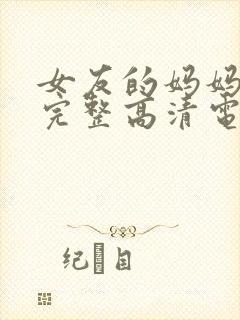 女友的妈妈
完整高清電
纪 目